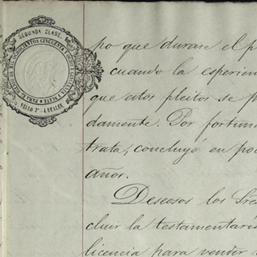 SEGUNDA CLASE.
po que durare el p
cuando la esperien
que estos pleitos se p
damente. Por fortun
trata, concluyo en po
años.
Deseosos los Sre
cluir la testamentari
licencia para vender